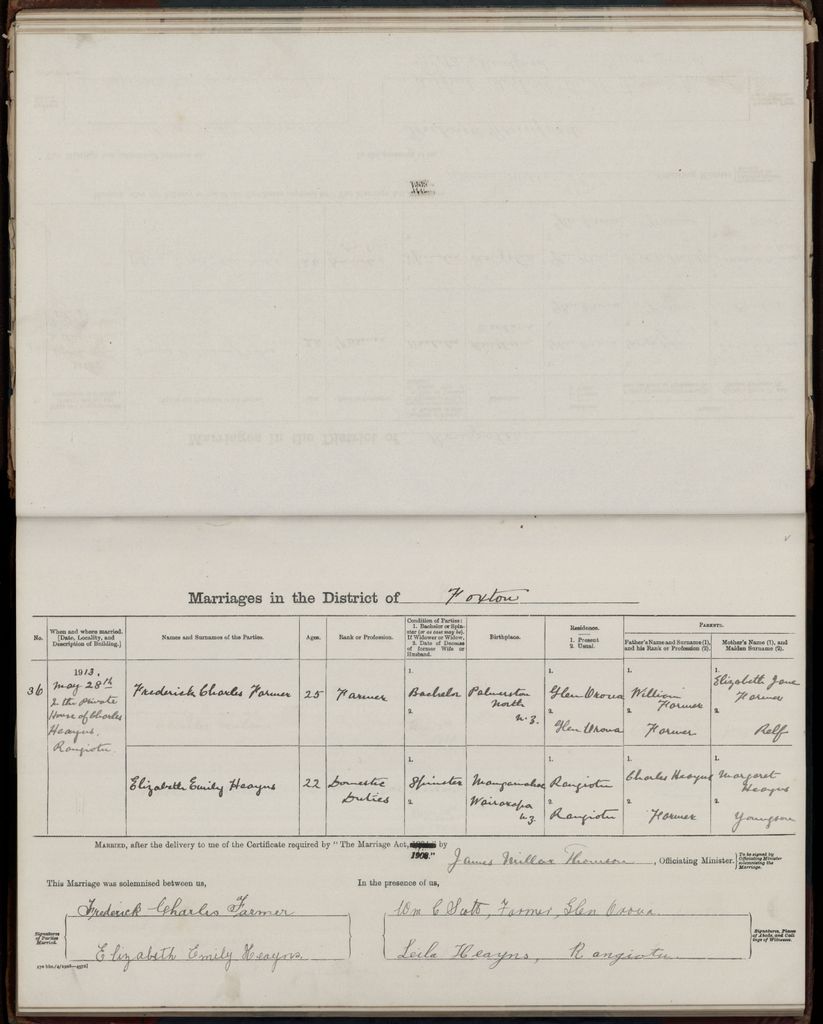 Marriages in the District of Foxton
No.
When and where married.
(Date, Locality, and
Description of Building.)
Names and Surnames of the Parties.
Ages.
Rank or Profession.
Condition of Parties:
1. Bachelor or Spin-
ster (or as case may be).
If Widower or Widow,
2. Date of Decease
of former Wife or
Husband.
Birthplace.
Residence.
1. Present
2. Usual.
PARENTS.
Father's Name and Surname (1),
and his Rank or Profession (2).
Mother's Name (1), and
Maiden Surname (2).
36
1913.
May 28th
the Private
House of Charles
Heayns,
Rangiotu.
Frederick Charles Farmer
25
Farmer
1.
Bachelor
2.
Palmerston
North
N.Z.
1.
Glen Oroua
2.
Glen Oroua
1.
William
Farmer
2.
Farmer
1.
Elizabeth Jane
Farmer
2.
Relf
Elizabeth Emily Heayns
22
Domestic
Duties
1.
Spinster
2.
Mangamahoe
Wairarapa
N.Z.
1.
Rangiotu
2.
Rangiotu
1.
Charles Heayns
2.
Farmer
1.
Margaret
Heayns
2.
Youngson
MARRIED, after the delivery to me of the Certificate required by "The Marriage Act, 1908," by
James Millar Thomson, Officiating Minister.
To be signed by
Officiating Minister
solemnizing the
Marriage.
This Marriage was solemnised between us,
In the presence of us,
Signatures
of Parties
Married.
Frederick Charles Farmer
Elizabeth Emily Heayns.
Wm C Scott, Farmer, Glen Oroua.
Leila Heayns, Rangiotu.
Signatures, Places
of Abode, and Call-
ings of Witnesses.